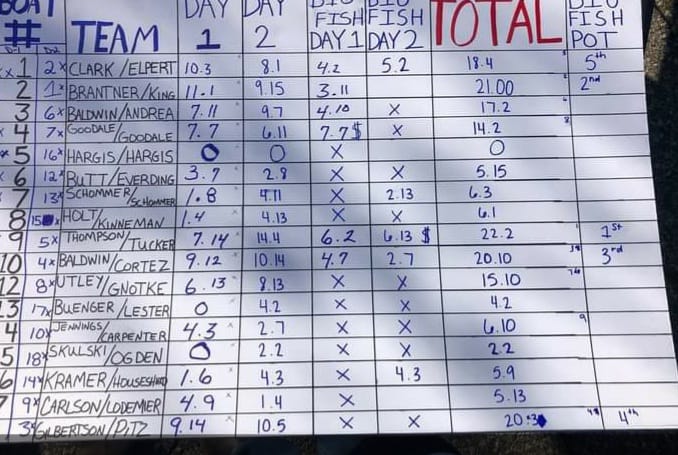 BOAT # TEAM DAY 1 DAY 2 BIG FISH DAY 1 BIG FISH DAY 2 TOTAL BIG FISH POT
1 2x CLARK/ELPERT 10.3 8.1 4.2 5.2 18.4 5th
2 1x BRANTNER/KING 11.1 9.15 3.11 21.00 2nd
3 6x BALDWIN/ANDREA 7.11 9.7 4.10 X 17.2
4 7x GOODALE/GOODALE 7.7 6.11 7.7$ X 14.2
5 16x HARGIS/HARGIS 0 0 X 0
6 12x BUTT/EVERDING 3.7 2.8 X X 5.15
7 13x SCHOMMER/SCHOMMER 1.8 4.11 X 2.13 6.3
8 15 x HOLT/KINNEMAN 1.4 4.13 X X 6.1
9 5x THOMPSON/TUCKER 7.14 14.4 6.2 6.13 $ 22.2 1st
10 4x BALDWIN/CORTEZ 9.12 10.14 4.7 2.7 20.10 3rd
12 8x UTLEY/GNOTKE 6.13 8.13 X X 15.10
13 17x BUENGER/LESTER 0 4.2 X X 4.2
4 10x JENNINGS/CARPENTER 4.3 2.7 X X 6.10
5 18x SKULSKI/OGDEN 0 2.2 X X 2.2
6 14x KRAMER/ 1.6 4.3 X 4.3 5.9
7 9x CARLSON/LODEMIER 4.9 1.4 X 5.13
3x GILBERTSON/PITZ 9.14 10.5 X X 20.3 4th